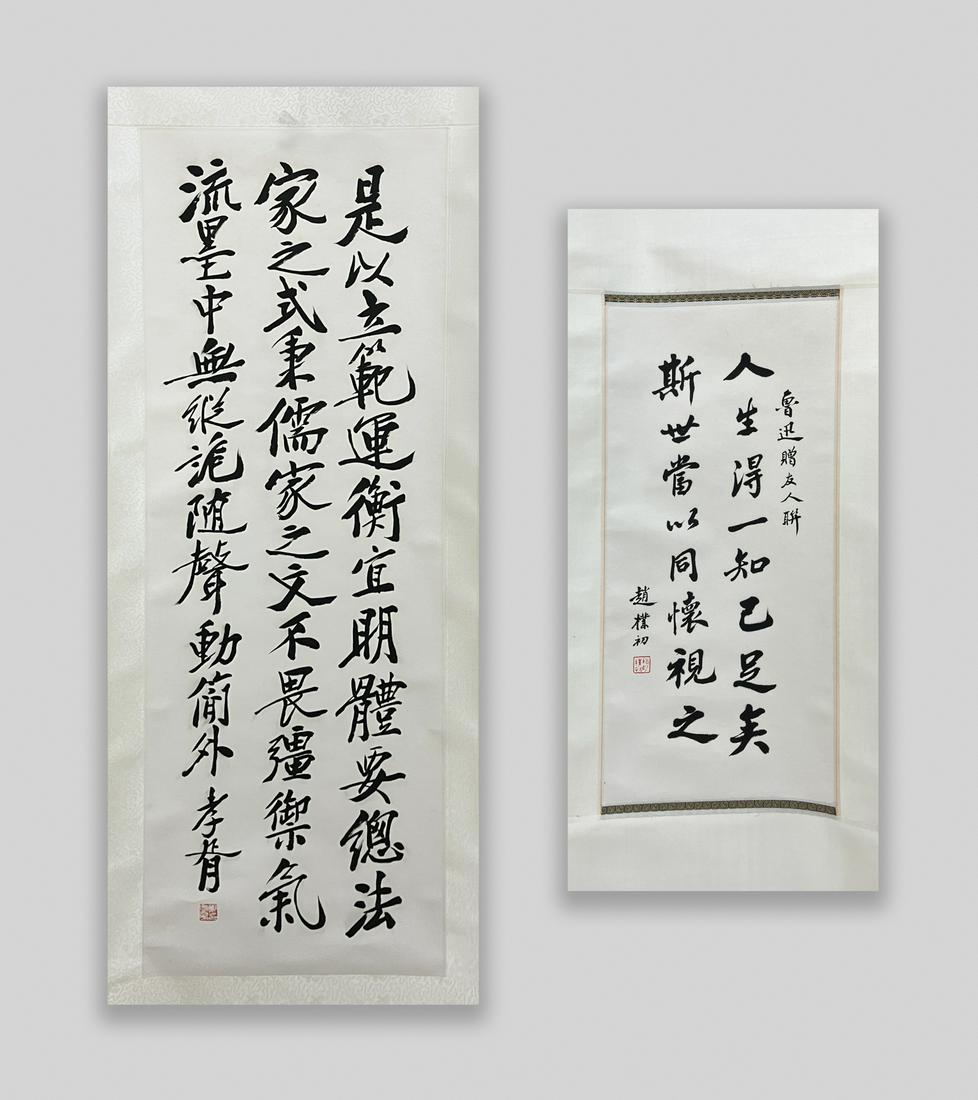 是以立範運衡宜明體要總法
家之式秉儒家之文不畏彊禦氣
流墨中無縱詭隨聲動簡外
孝胥
魯迅贈友人聯
人生得一知己足矣
斯世當以同懷視之
趙樸初